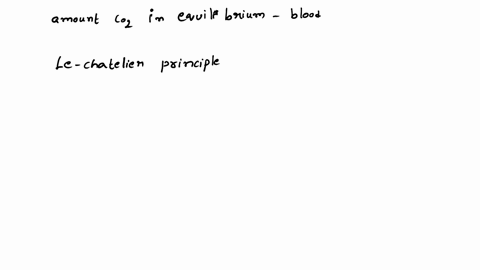 amount CO2 in equilibrium - blood
Le-chatelien principle